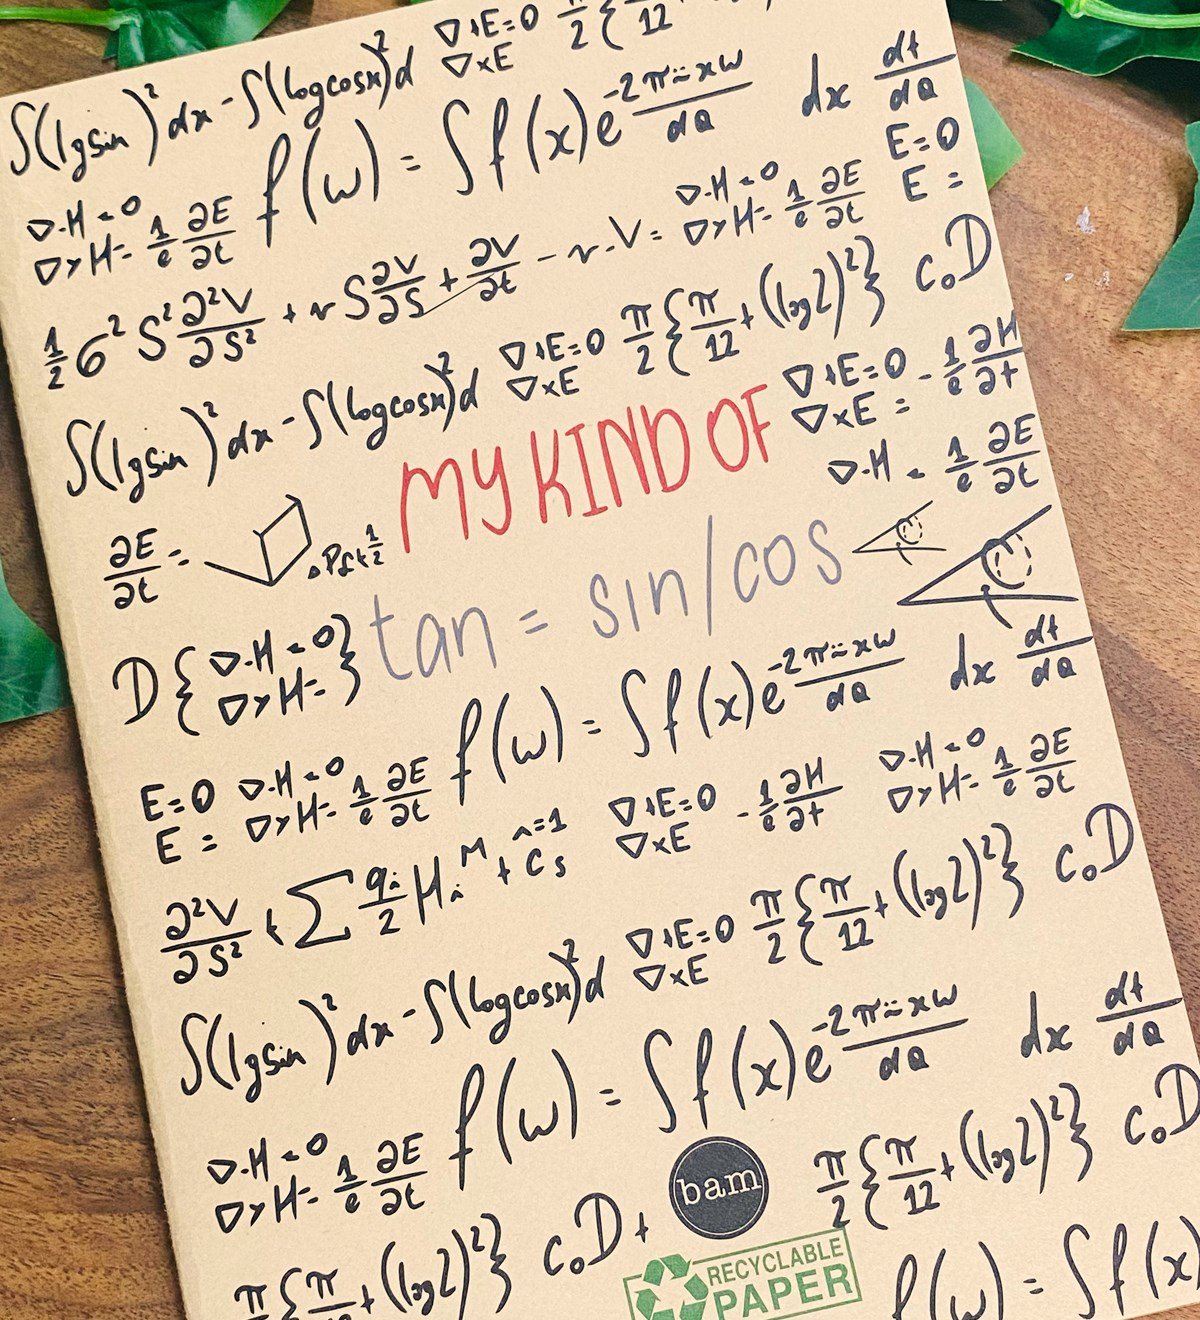 ∫(lgsin)² dx - ∫(logcosx)² d ∇+E=0 π/2 { π/12
∇×E
f(w) = ∫f(x)e -2πi xw / dQ dx dt/dQ
∇·H=0
∇×H= 1/e ∂E/∂t
E=0
E =
∇·H=0
∇×H= 1/e ∂E/∂t
1/2 6² S² ∂²V/∂S² + r S ∂V/∂S + ∂V/∂t - r·V=
∫(lgsin)² dx - ∫(logcosx)² d ∇+E=0 π/2 { π/12 + (log2)² } c₀D
∇×E
∇+E=0
∇×E = - 1/e ∂H/∂t
MY KIND OF
∇·H = 1/e ∂E/∂t
∂E/∂t =
tan = sin/cos
D { ∇·H=0
∇×H= }
f(w) = ∫f(x)e -2πi xw / dQ dx dt/dQ
E=0 ∇·H=0
E = ∇×H= 1/e ∂E/∂t
∇+E=0
∇×E - 1/e ∂H/∂t
∇·H=0
∇×H= 1/e ∂E/∂t
∂²V/∂S² + ∑ qi/2 Hi M + Cs i=1
∫(lgsin)² dx - ∫(logcosx)² d ∇+E=0 π/2 { π/12 + (log2)² } c₀D
∇×E
f(w) = ∫f(x)e -2πi xw / dQ dx dt/dQ
∇·H=0
∇×H= 1/e ∂E/∂t
bam
π/2 { π/12 + (log2)² } c₀D
π { π + (log2)² } c₀D +
RECYCLABLE
PAPER
f(w) = ∫f(x)